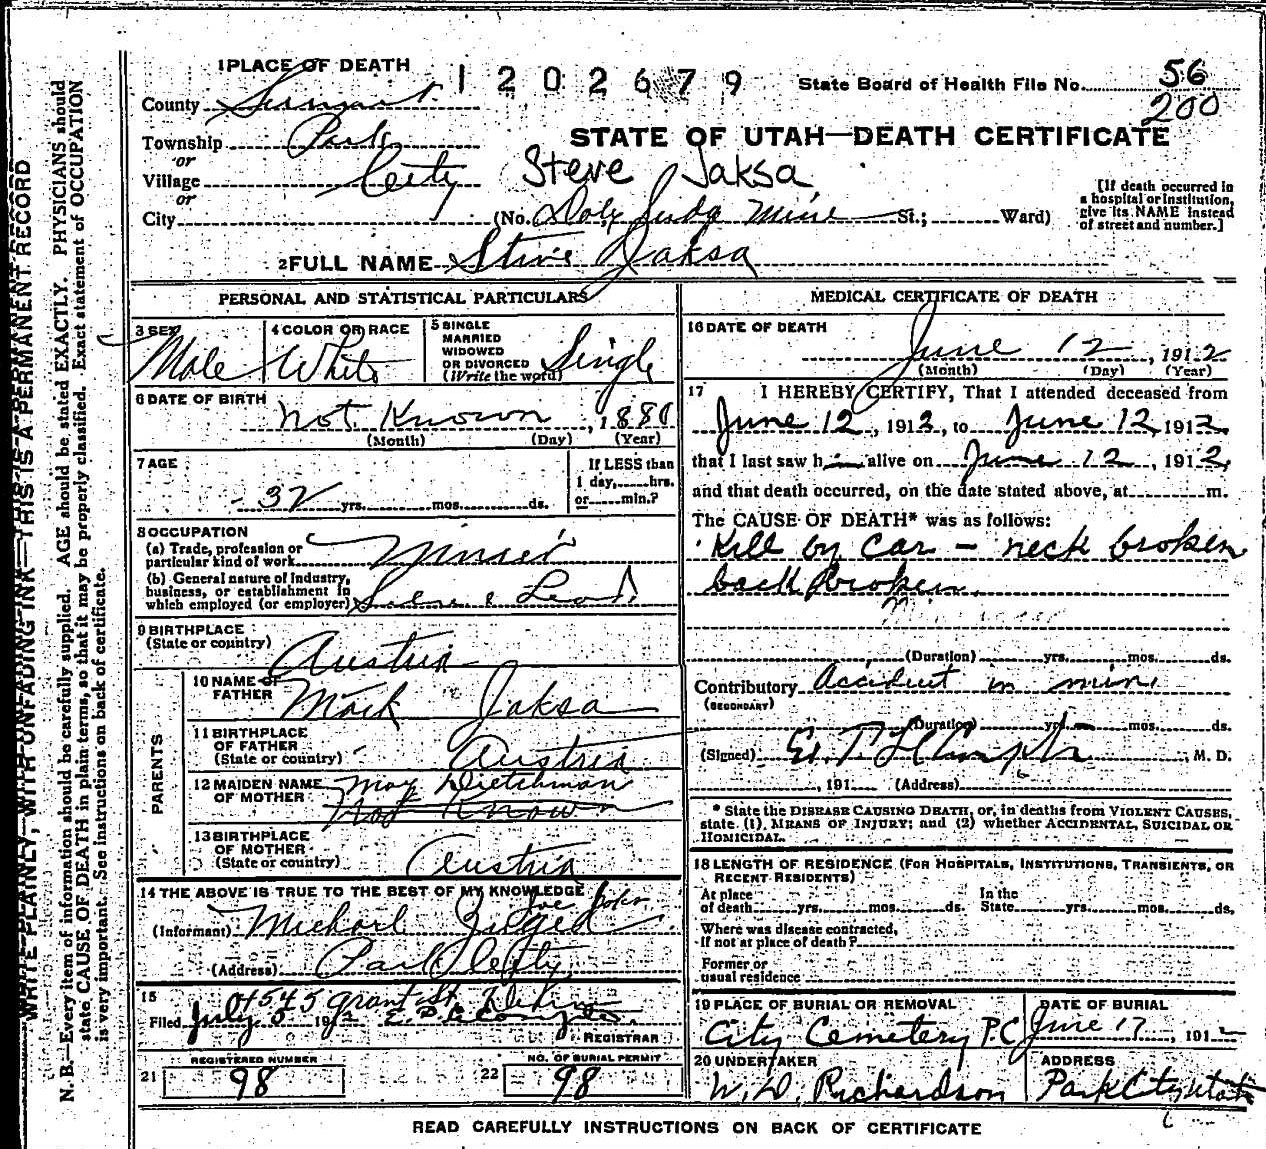 1 PLACE OF DEATH
1 2 0 2 6 7 9
State Board of Health File No. 56
200
County Summit
Township Park
or
Village City
or
City
STATE OF UTAH—DEATH CERTIFICATE
Steve Jaksa
(No. Daly Judge Mine St.; Ward)
[If death occurred in
a hospital or institution,
give its NAME instead
of street and number.]
2 FULL NAME Steve Jaksa
PERSONAL AND STATISTICAL PARTICULARS
3 SEX
Male
4 COLOR OR RACE
White
5 SINGLE
MARRIED
WIDOWED
OR DIVORCED
(Write the word)
Single
6 DATE OF BIRTH
not Known, 1880
(Month) (Day) (Year)
7 AGE
32 yrs. mos. ds.
If LESS than
1 day, hrs.
or min.?
8 OCCUPATION
(a) Trade, profession or
particular kind of work Miner
(b) General nature of Industry,
business, or establishment in
which employed (or employer) Silver & Lead
9 BIRTHPLACE
(State or country)
Austria
PARENTS
10 NAME OF
FATHER
Mark Jaksa
11 BIRTHPLACE
OF FATHER
(State or country)
Austria
12 MAIDEN NAME
OF MOTHER
May Dietchman
Not Known
13 BIRTHPLACE
OF MOTHER
(State or country)
Austria
14 THE ABOVE IS TRUE TO THE BEST OF MY KNOWLEDGE
Joe
(Informant) Michael
(Address) Park City
15
545 Grant St.
Filed July 5 191
REGISTRAR
21
REGISTERED NUMBER
98
22
NO. OF BURIAL PERMIT
98
MEDICAL CERTIFICATE OF DEATH
16 DATE OF DEATH
June 12, 1912
(Month) (Day) (Year)
17 I HEREBY CERTIFY, That I attended deceased from
June 12, 1912, to June 12, 1912,
that I last saw h im alive on June 12, 1912,
and that death occurred, on the date stated above, at m.
The CAUSE OF DEATH* was as follows:
Kill by car - neck broken
back broken
(Duration) yrs. mos. ds.
Contributory Accident in mine
(SECONDARY)
(Duration) yrs. mos. ds.
(Signed) M. D.
, 191 (Address)
* State the DISEASE CAUSING DEATH, or, in deaths from VIOLENT CAUSES,
state (1) MEANS OF INJURY; and (2) whether ACCIDENTAL, SUICIDAL OR
HOMICIDAL.
18 LENGTH OF RESIDENCE (FOR HOSPITALS, INSTITUTIONS, TRANSIENTS, OR
RECENT RESIDENTS)
At place In the
of death yrs. mos. ds. State yrs. mos. ds.
Where was disease contracted,
if not at place of death?
Former or
usual residence
19 PLACE OF BURIAL OR REMOVAL
City Cemetery P.C
DATE OF BURIAL
June 17, 1912
20 UNDERTAKER
W. D. Richardson
ADDRESS
Park City Utah
READ CAREFULLY INSTRUCTIONS ON BACK OF CERTIFICATE
WRITE PLAINLY, WITH UNFADING INK—THIS IS A PERMANENT RECORD
N. B.—Every item of information should be carefully supplied. AGE should be stated EXACTLY. PHYSICIANS should
state CAUSE OF DEATH in plain terms, so that it may be properly classified. Exact statement of OCCUPATION
is very important. See instructions on back of certificate.